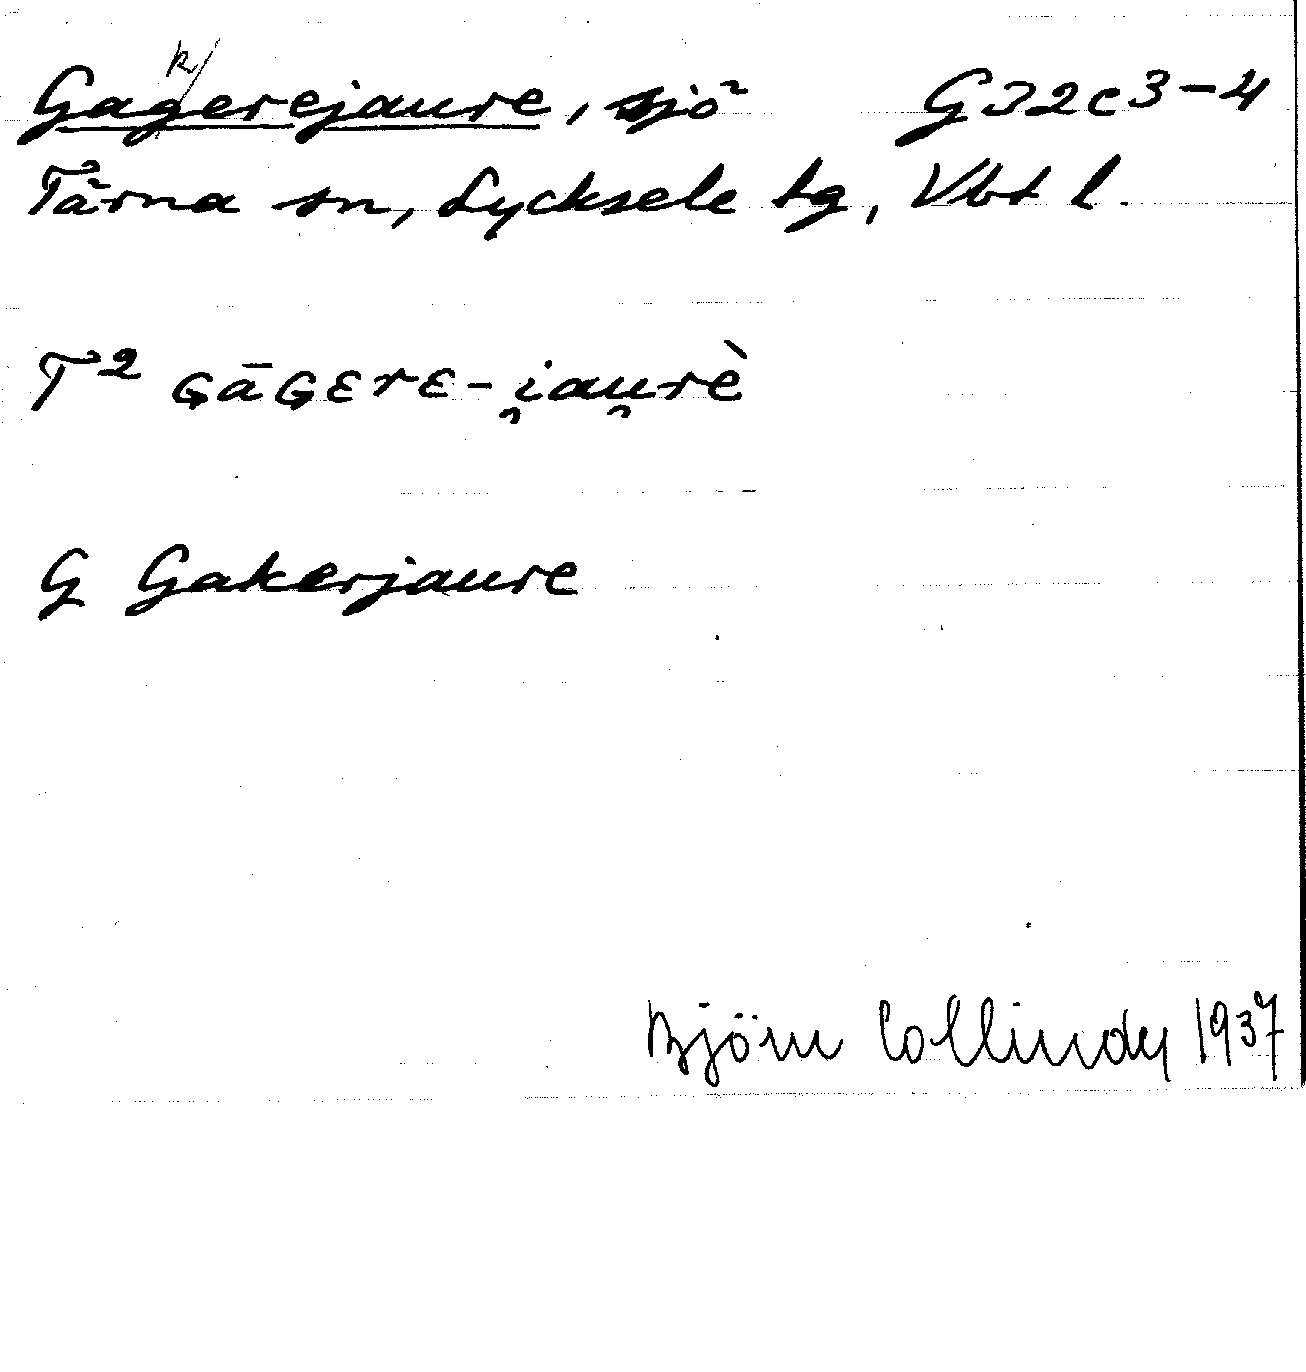 k/
Gagerejaure, sjö G32c3-4
Tärna sn, Lycksele lg, Vbt l.
T² ɢāɢɛrɛ-i̯au̯rè
G Gakerjaure
Björn Collinder 1937